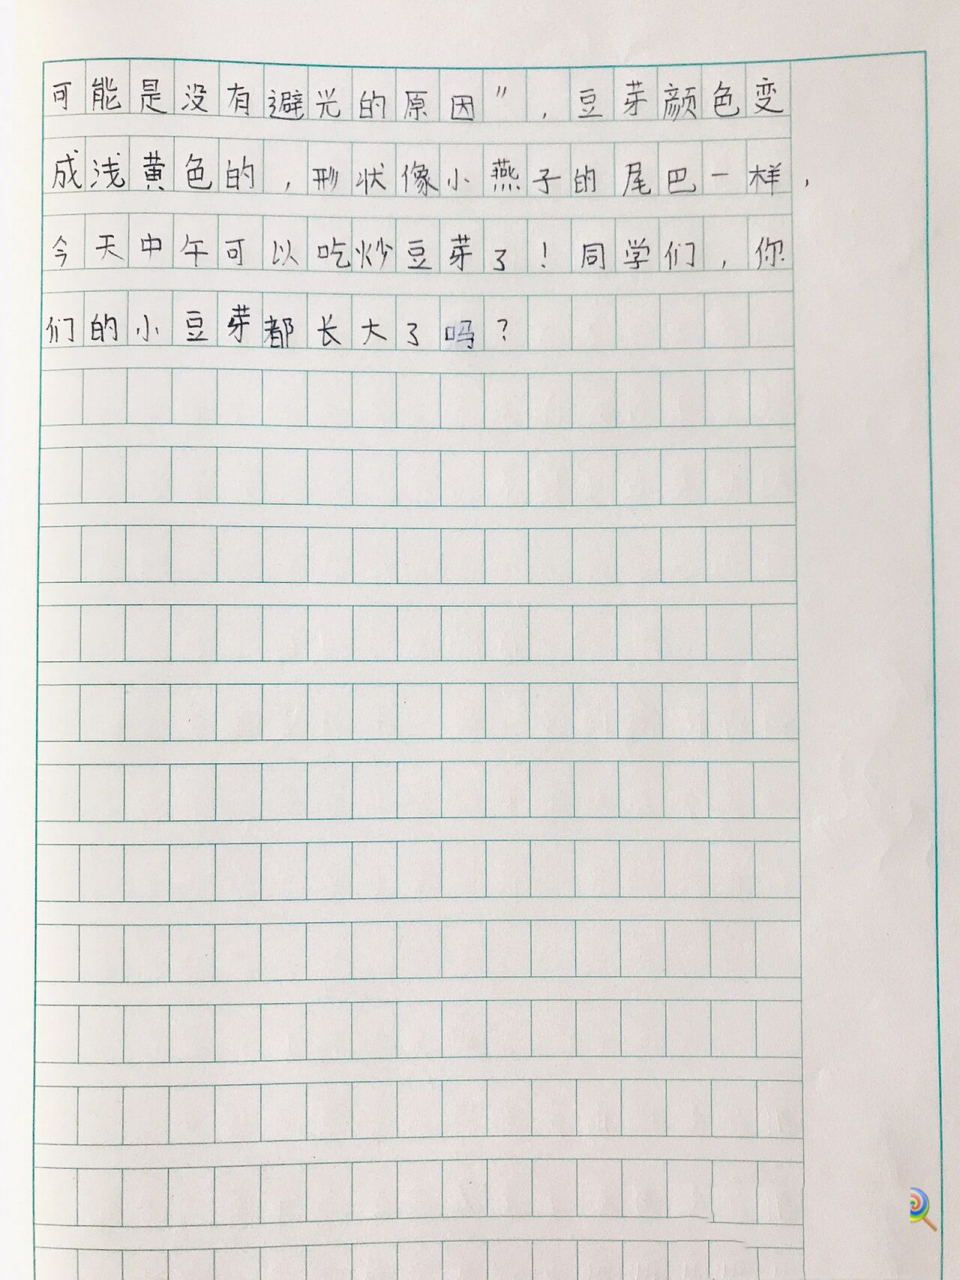 可能是没有避光的原因”，豆芽颜色变
成浅黄色的，形状像小燕子的尾巴一样，
今天中午可以吃炒豆芽了！同学们，你
们的小豆芽都长大了吗？